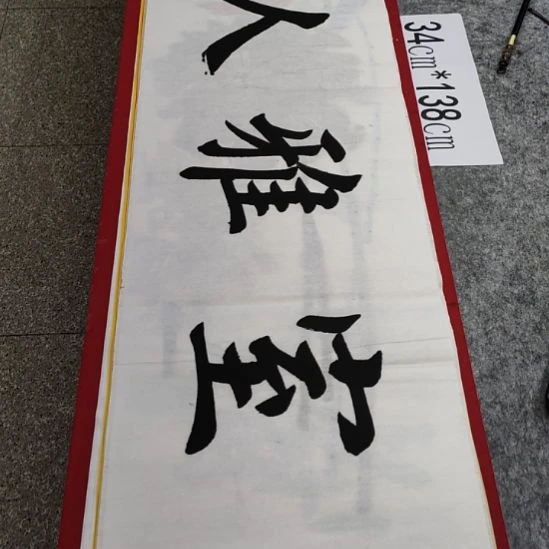 室雅人
34cm*138cm